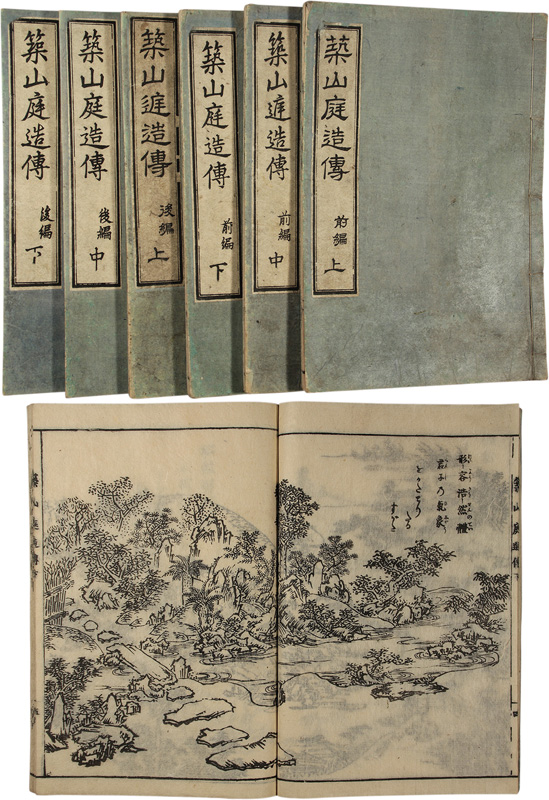 築山庭造傳 前編 上
築山庭造傳 前編 中
築山庭造傳 前編 下
築山庭造傳 後編 上
築山庭造傳 後編 中
築山庭造傳 後編 下
築山庭造傳
形容浩然體
君子乃
築山庭造傳